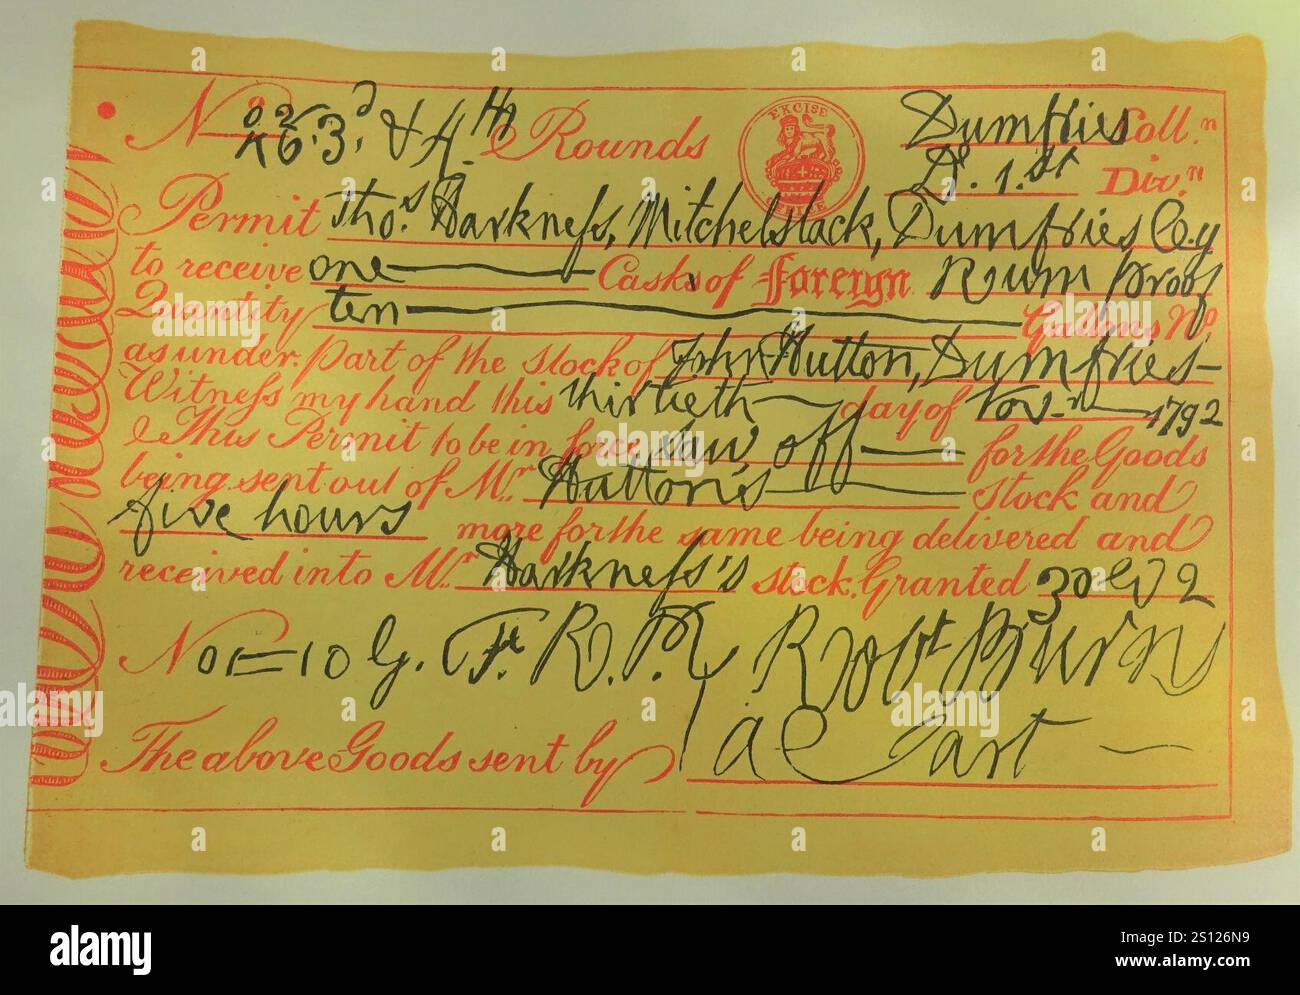 No 3.d & 4.th Rounds
EXCISE
Dumfries Coll.n
Do. 1.st Div.n
Permit Thos Harkness, Mitchelslack, Dumfries Coy
to receive one Cask of Foreign Rum proof
Quantity ten Gallons No.
as under part of the stock of John Hutton, Dumfries
Witness my hand this thirtieth day of Nov.r 1792
This Permit to be in force off for the Goods
being sent out of Mr Hutton's stock and
five hours more for the same being delivered and
received into Mr Harkness's stock. Granted 92
No 1=10 G. Fr. R. Robt Burns
The above Goods sent by a Cart
alamy
Image ID: 2S126N9
www.alamy.com